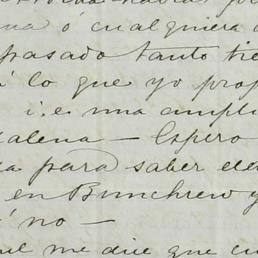 ó cualquiera
pasado tanto tie
á lo que yo prop
i.e. una ampli
alena — Espero
para saber
en Bunchrew y
no —
me dice que